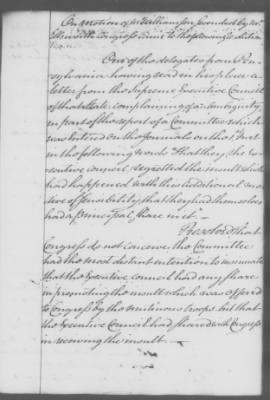 On motion of Mr Williamson seconded by Mr
Congress came to the following
One of the delegates from Penn
sylvania having read in his place a
letter from the Supreme Executive Council
of that State complaining of an ambiguity
in part of the report of a Committee which
was entered on the Journals on the 1st
in the following words "That they the Ex
ecutive council, regretted the insult which
had happened with this additional mo
tive of sensibility, that they had themselves
had a principal share in it."
Resolved that
Congress do not conceive the Committee
had the most distant intention to insinuate
that the Executive council had any share
in promoting the insult which was offered
to Congress by the mutinous troops but that
the Executive Council had shared with Congress
in receiving the insult